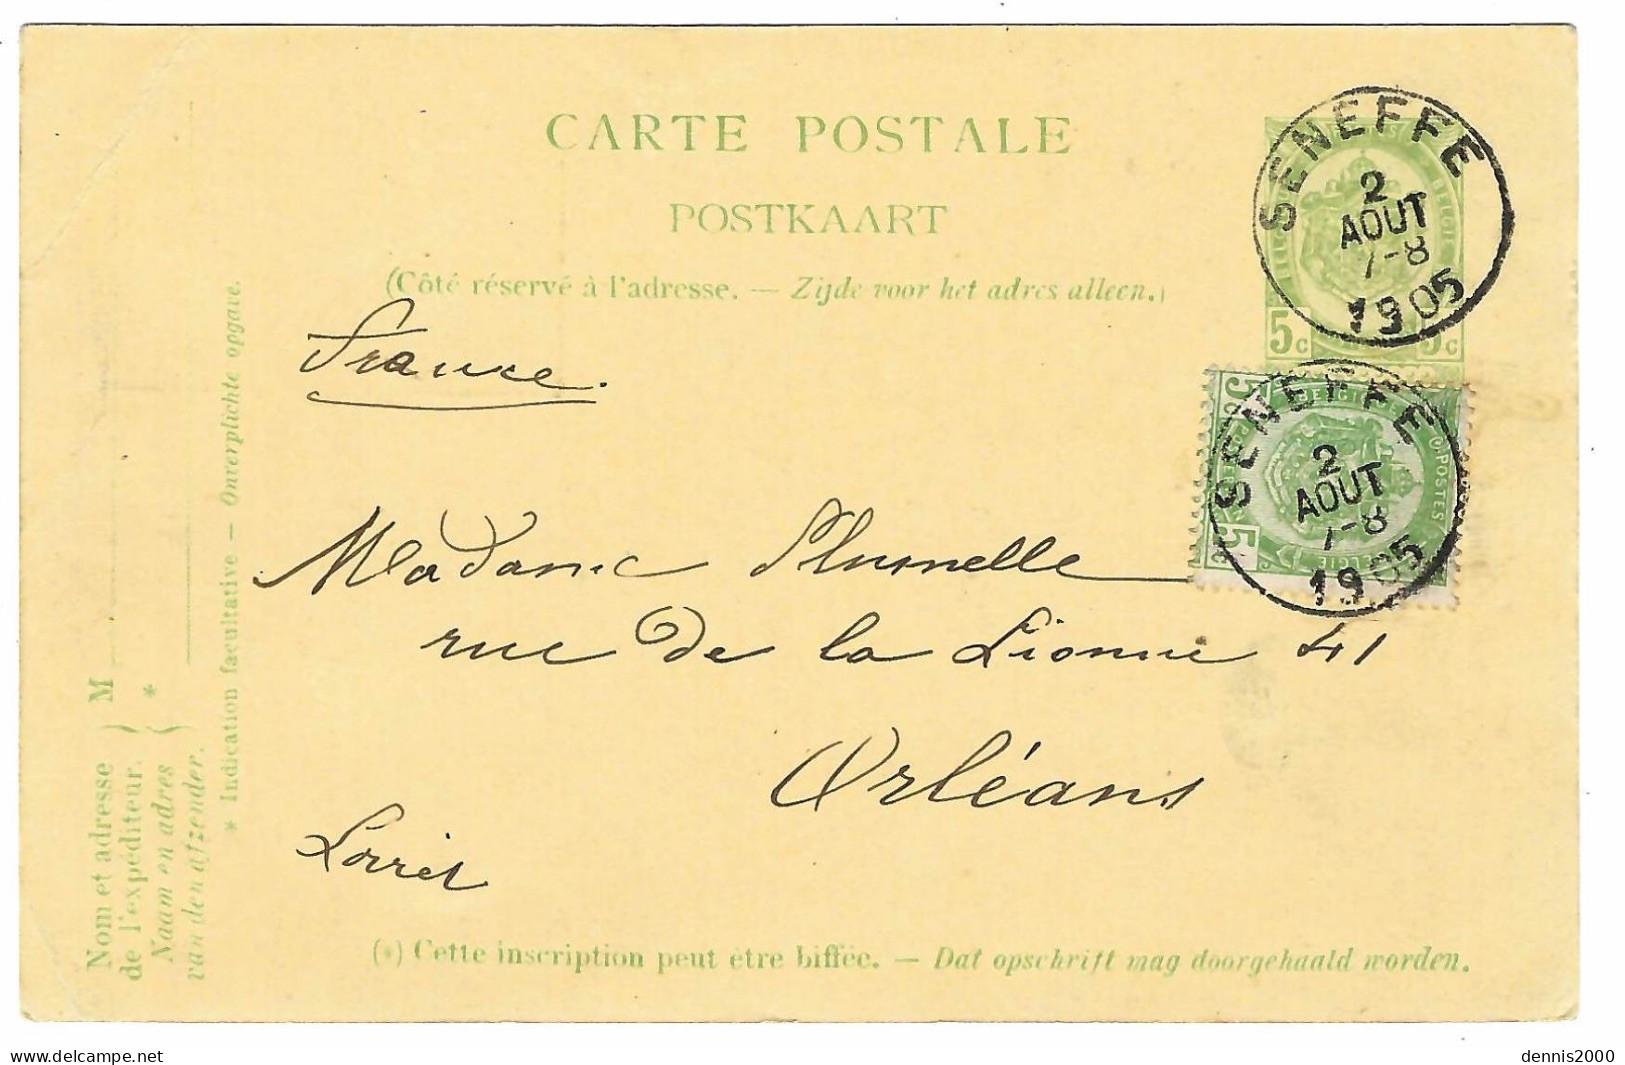 CARTE POSTALE
POSTKAART
(Côté réservé à l'adresse. — Zijde voor het adres alleen.)
SENEFFE
2
AOUT
7-8
1905
5c 5c
SENEFFE
2
AOUT
7-8
1905
France.
Madame Plumelle
rue de la Lionne 41
Orléans
Loiret
Nom et adresse
de l'expéditeur.
Naam en adres
van den afzender.
M
*
* Indication facultative — Onverplichte opgave.
(*) Cette inscription peut être biffée. — Dat opschrift mag doorgehaald worden.
www.delcampe.net
dennis2000